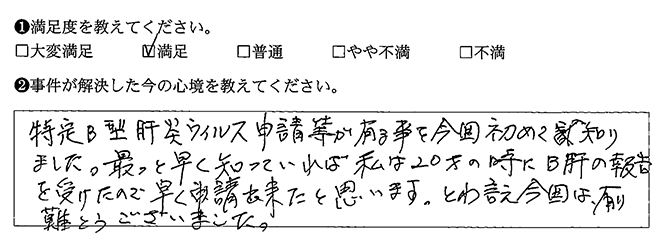 ❶満足度を教えてください。
☐大変満足 ☑満足 ☐普通 ☐やや不満 ☐不満
❷事件が解決した今の心境を教えてください。
特定B型肝炎ウィルス申請等が有る事を今回初めて知り
ました。最っと早く知っていれば私は20才の時にB肝の報告
を受けたので早く申請出来たと思います。とわ言え今回は、有り
難とうございました。